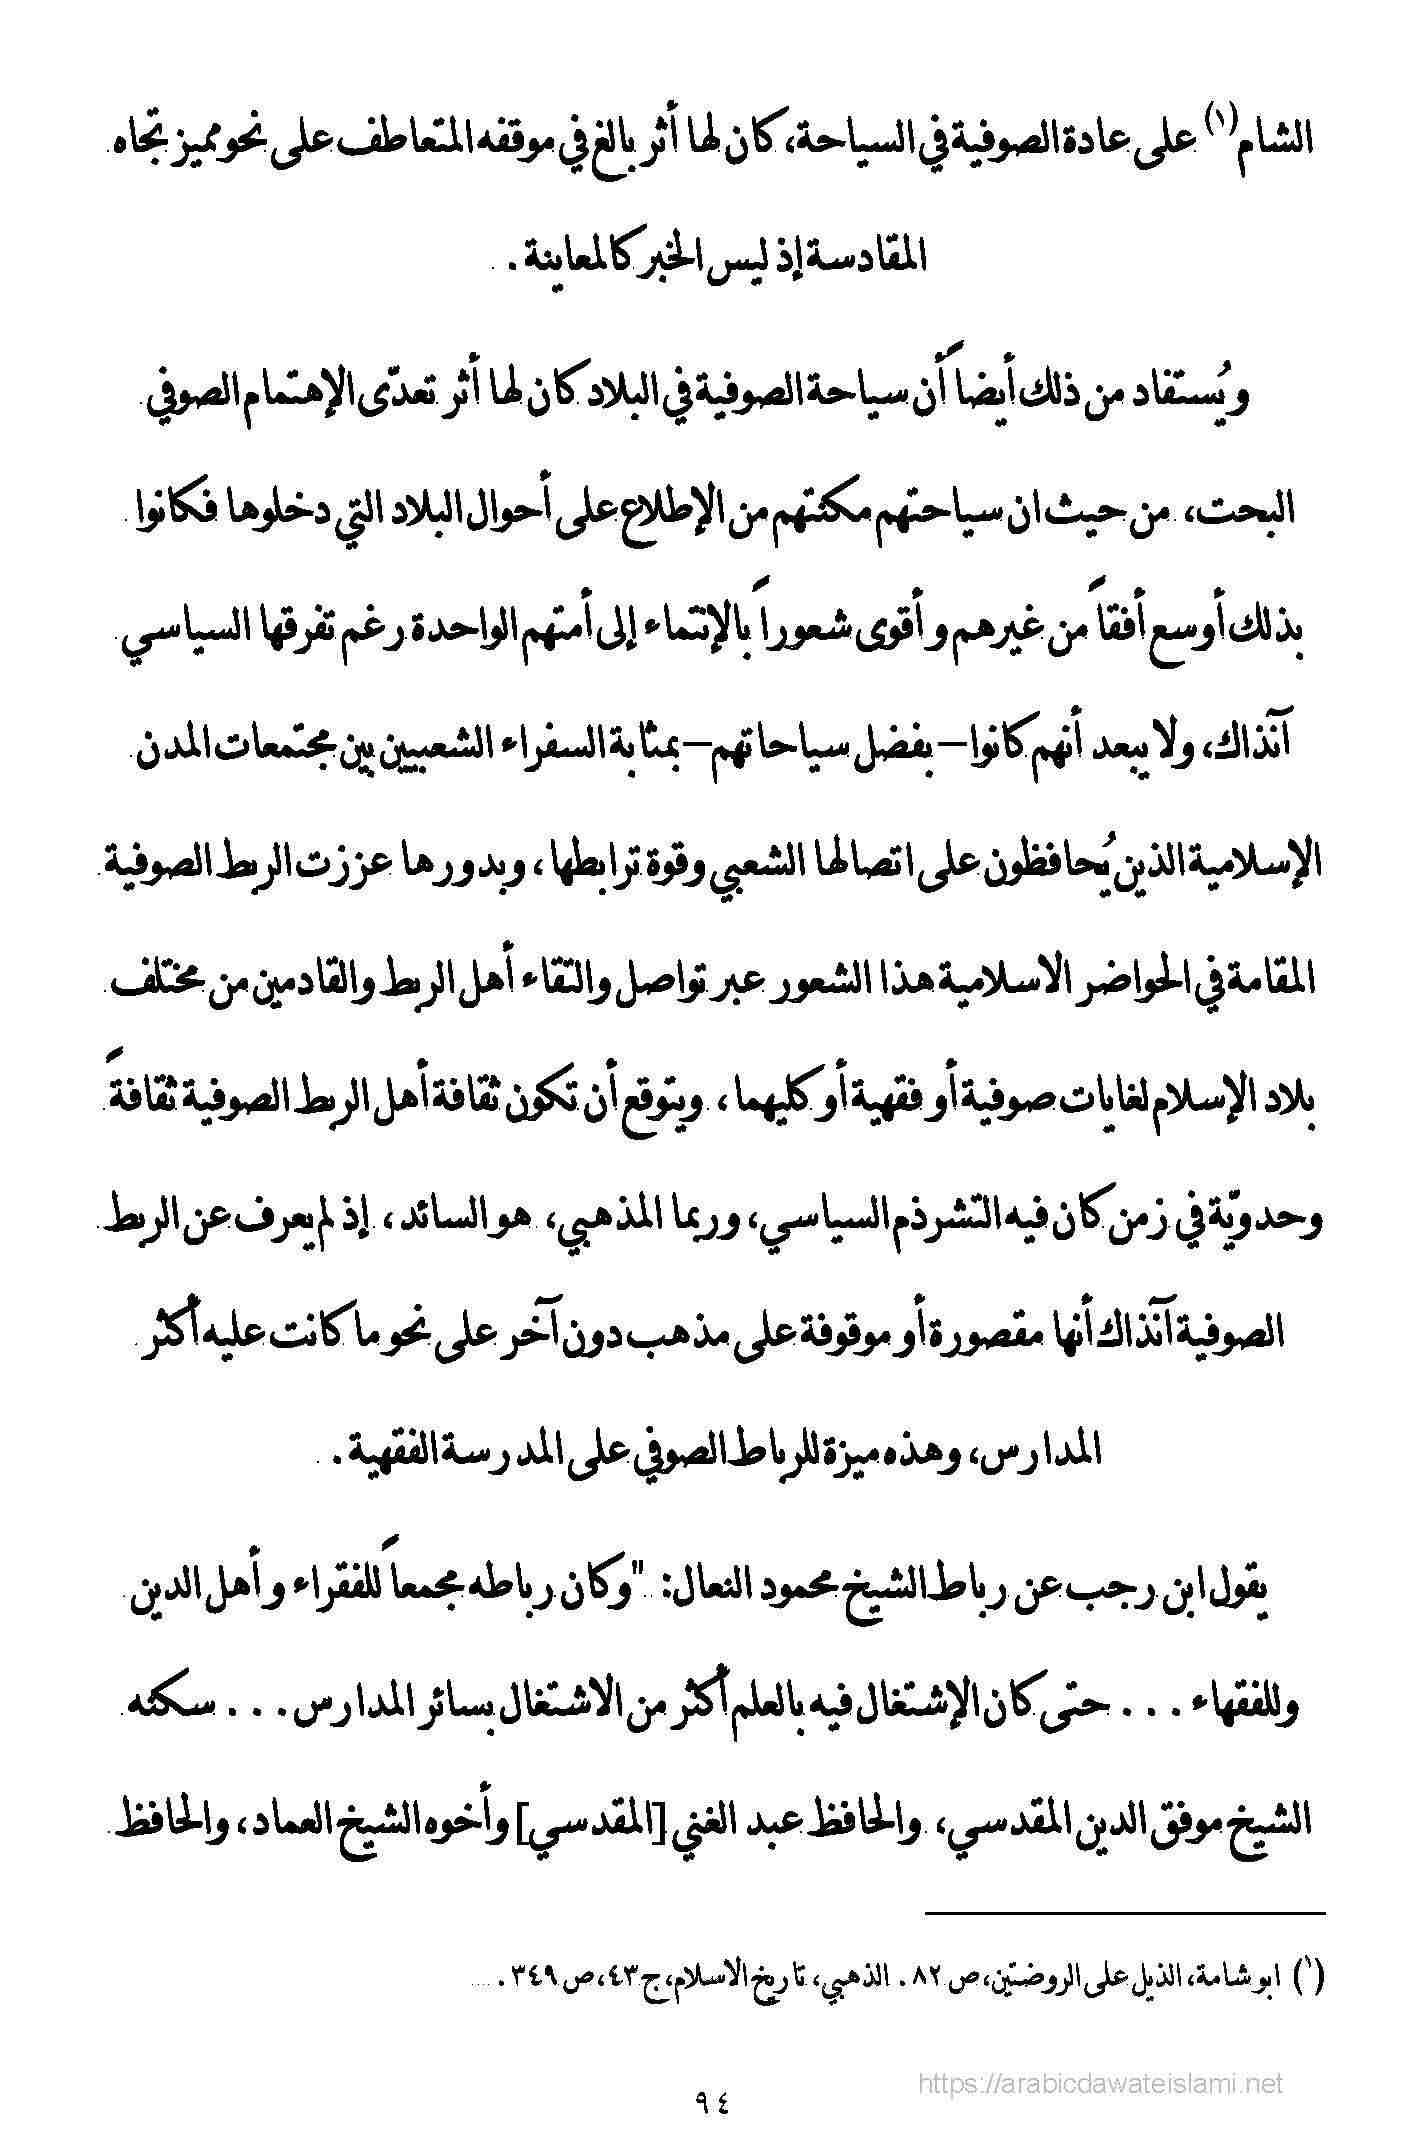 الشام(١) على عادة الصوفية في السياحة، كان لها أثر بالغ في موقفه المتعاطف على نحو مميز تجاه
المقادسة إذ ليس الخبر كالمعاينة .
ويُستفاد من ذلك أيضاً أن سياحة الصوفية في البلاد كان لها أثر تعدّى الإهتمام الصوفي
البحت، من حيث ان سياحتهم مكنتهم من الإطلاع على أحوال البلاد التي دخلوها فكانوا
بذلك أوسع أفقاً من غيرهم وأقوى شعوراً بالإنتماء إلى أمتهم الواحدة رغم تفرقها السياسي
آنذاك، ولا يبعد أنهم كانوا – بفضل سياحاتهم – بمثابة السفراء الشعبيين بين مجتمعات المدن
الإسلامية الذين يُحافظون على اتصالها الشعبي وقوة ترابطها، وبدورها عززت الربط الصوفية
المقامة في الحواضر الاسلامية هذا الشعور عبر تواصل والتقاء أهل الربط والقادمين من مختلف
بلاد الإسلام لغايات صوفية أو فقهية أو كليهما، ويتوقع أن تكون ثقافة أهل الربط الصوفية ثقافةً
وحدويّة في زمن كان فيه التشرذم السياسي، وربما المذهبي، هو السائد، إذ لم يعرف عن الربط
الصوفية آنذاك أنها مقصورة أو موقوفة على مذهب دون آخر على نحو ما كانت عليه أكثر
المدارس، وهذه ميزة للرباط الصوفي على المدرسة الفقهية .
يقول ابن رجب عن رباط الشيخ محمود النعال: "وكان رباطه مجمعاً للفقراء وأهل الدين
وللفقهاء . . . حتى كان الإشتغال فيه بالعلم أكثر من الاشتغال بسائر المدارس . . . سكنه
الشيخ موفق الدين المقدسي، والحافظ عبد الغني [المقدسي] وأخوه الشيخ العماد، والحافظ
(١) ابو شامة، الذيل على الروضتين، ص ٨٢ . الذهبي، تاريخ الاسلام، ج ٤٣، ص ٣٤٩ .
https://arabicdawateislami.net
٩٤